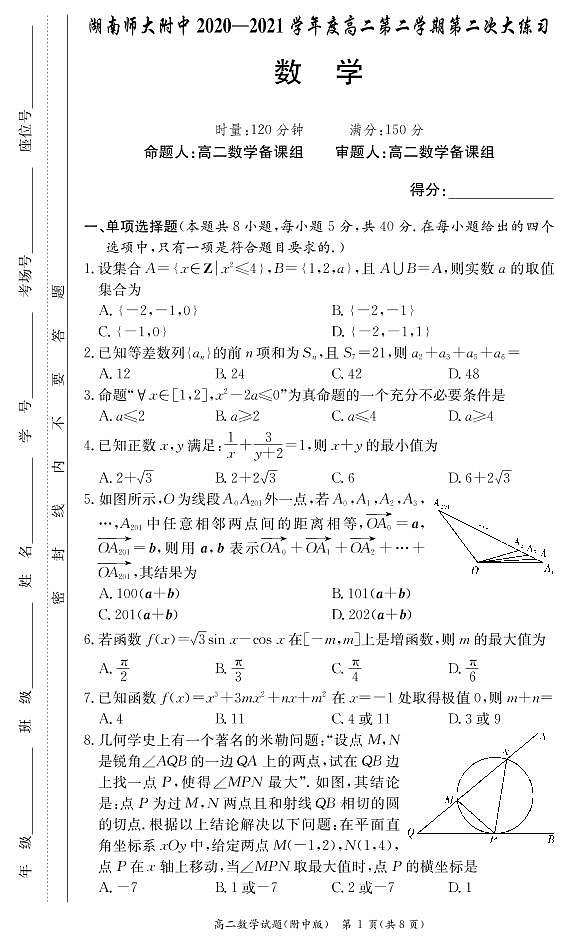 湖南师大附中 2020—2021 学年度高二第二学期第二次大练习
数 学
时量:120 分钟 满分:150 分
命题人:高二数学备课组 审题人:高二数学备课组
得分:
一、单项选择题(本题共 8 小题,每小题 5 分,共 40 分. 在每小题给出的四个
选项中,只有一项是符合题目要求的.)
1. 设集合 A={x∈Z|x²≤4},B={1,2,a},且 A∪B=A,则实数 a 的取值
集合为
A. {-2,-1,0} B. {-2,-1}
C. {-1,0} D. {-2,-1,1}
2. 已知等差数列{aₙ}的前 n 项和为 Sₙ,且 S₇=21,则 a₂+a₃+a₅+a₆=
A. 12 B. 24 C. 42 D. 48
3. 命题“∀x∈[1,2],x²-2a≤0”为真命题的一个充分不必要条件是
A. a≤2 B. a≥2 C. a≤4 D. a≥4
4. 已知正数 x,y 满足:1/x+3/(y+2)=1,则 x+y 的最小值为
A. 2+√3 B. 2+2√3 C. 6 D. 6+2√3
5. 如图所示,O 为线段 A₀A₂₀₁外一点,若 A₀,A₁,A₂,A₃,
…,A₂₀₁ 中任意相邻两点间的距离相等,OA₀=a,
OA₂₀₁=b,则用 a,b 表示OA₀+OA₁+OA₂+…+
OA₂₀₁,其结果为
A. 100(a+b) B. 101(a+b)
C. 201(a+b) D. 202(a+b)
6. 若函数 f(x)=√3 sin x-cos x 在[-m,m]上是增函数,则 m 的最大值为
A. π/2 B. π/3 C. π/4 D. π/6
7. 已知函数 f(x)=x³+3mx²+nx+m² 在 x=-1 处取得极值 0,则 m+n=
A. 4 B. 11 C. 4 或 11 D. 3 或 9
8. 几何学史上有一个著名的米勒问题:“设点 M,N
是锐角∠AQB 的一边 QA 上的两点,试在 QB 边
上找一点 P,使得∠MPN 最大”. 如图,其结论
是:点 P 为过 M,N 两点且和射线 QB 相切的圆
的切点. 根据以上结论解决以下问题:在平面直
角坐标系 xOy 中,给定两点 M(-1,2),N(1,4),
点 P 在 x 轴上移动,当∠MPN 取最大值时,点 P 的横坐标是
A. -7 B. 1 或-7 C. 2 或-7 D. 1
高二数学试题(附中版) 第 1 页(共 8 页)
座位号
考场号
学 号
姓 名
班 级
年 级
密 封 线 内 不 要 答 题